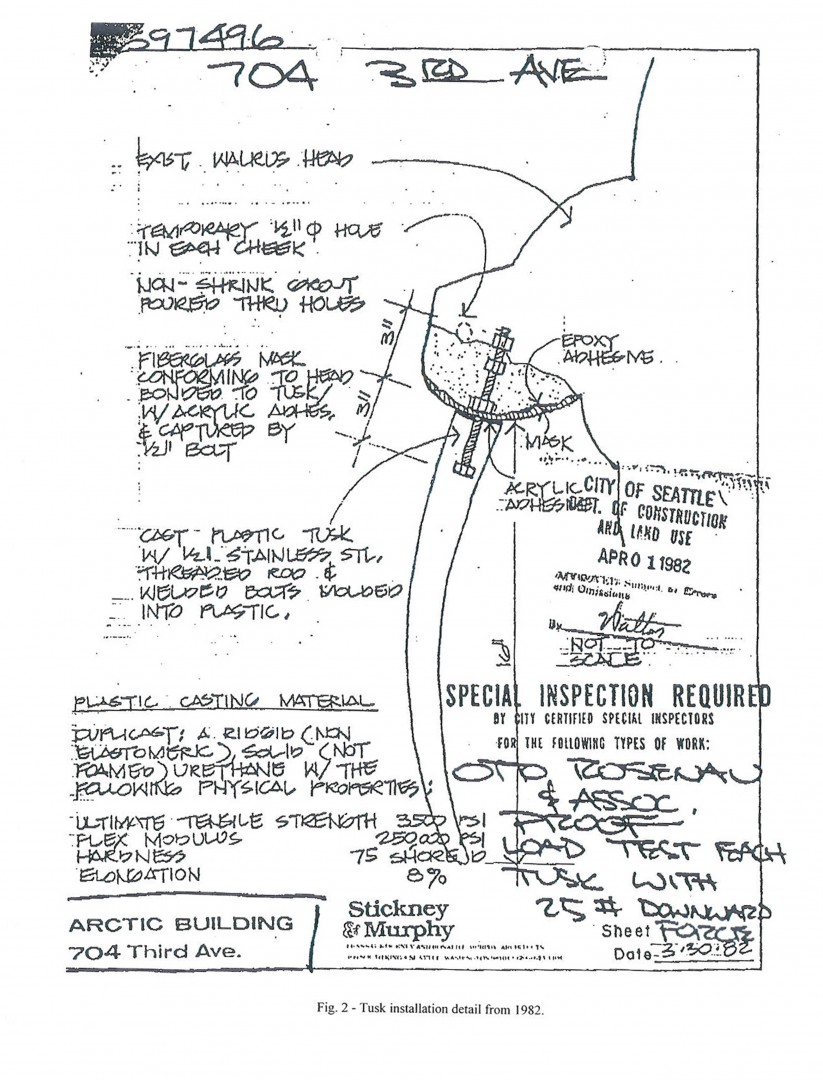 597496
704 3RD AVE
EXIST. WALRUS HEAD
TEMPORARY ½" Φ HOLE
IN EACH CHEEK
NON-SHRINK GROUT
POURED THRU HOLES
3"
EPOXY
ADHESIVE.
FIBERGLASS MASK
CONFORMING TO HEAD
BONDED TO TUSK/
W/ACRYLIC ADHES.
& CAPTURED BY
½" BOLT
3"
MASK
ACRYLIC
ADHESIVE
CITY OF SEATTLE
DEPT. OF CONSTRUCTION
AND LAND USE
APR 01 1982
Subject to Errors
and Omissions
By Walton
NOT TO
SCALE
CAST PLASTIC TUSK
W/ ½" STAINLESS STL.
THREADED ROD &
WELDED BOLTS MOLDED
INTO PLASTIC.
PLASTIC CASTING MATERIAL
DUPLICAST: A RIDGID (NON
ELASTOMERIC), SOLID (NOT
FOAMED) URETHANE W/ THE
FOLLOWING PHYSICAL PROPERTIES:
ULTIMATE TENSILE STRENGTH 3500 PSI
FLEX MODULUS 250,000 PSI
HARDNESS 75 SHORE D
ELONGATION 8%
SPECIAL INSPECTION REQUIRED
BY CITY CERTIFIED SPECIAL INSPECTORS
FOR THE FOLLOWING TYPES OF WORK:
OTTO ROSENAU
& ASSOC.
PROOF
LOAD TEST EACH
TUSK WITH
25 # DOWNWARD
FORCE
ARCTIC BUILDING
704 Third Ave.
Stickney
& Murphy
Sheet
Date 3·30·82
Fig. 2 - Tusk installation detail from 1982.